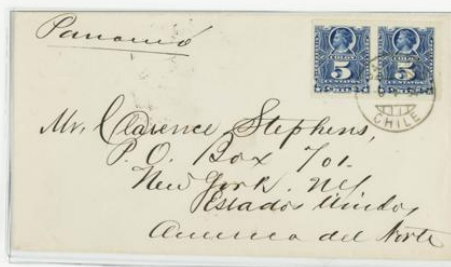 Panamá
COLON COLON
5 5
CHILE
Mr. Clarence Stephens,
P. O. Box 701.
New York. NY
Estados Unidos,
America del Norte